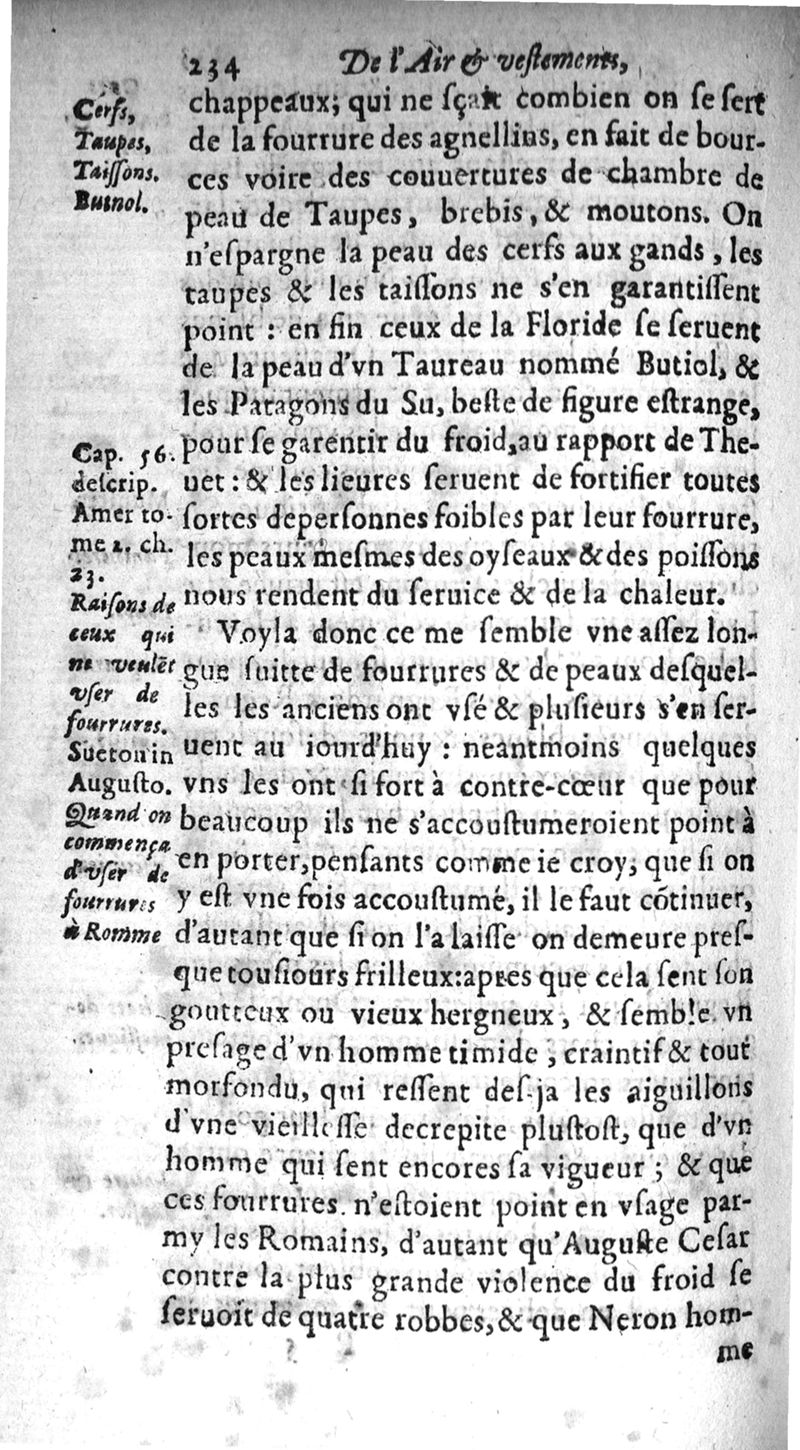 234 De l'Air & veſtements,
Cerfs,
Taupes,
Taiſſons.
Butnol.
chappeaux; qui ne ſçait combien on ſe ſert
de la fourrure des agnellins, en fait de bour-
ces voire des couuertures de chambre de
peau de Taupes, brebis, & moutons. On
n'eſpargne la peau des cerfs aux gands, les
taupes & les taiſſons ne s'en garantiſſent
point : en fin ceux de la Floride ſe ſeruent
de la peau d'vn Taureau nommé Butiol, &
les Patagons du Su, beſte de figure eſtrange,
pour ſe garentir du froid, au rapport de The-
uet : & les lieures ſeruent de fortifier toutes
ſortes de perſonnes foibles par leur fourrure,
les peaux meſmes des oyſeaux & des poiſſons
nous rendent du ſeruice & de la chaleur.
Cap. 56.
deſcrip.
Amer to-
me 2. ch.
23.
Raiſons de
ceux qui
ne veulēt
vſer de
fourrures.
Sueton in
Auguſto.
Quand on
commença
d'vſer de
fourrures
à Romme
Voyla donc ce me ſemble vne aſſez lon-
gue ſuitte de fourrures & de peaux deſquel-
les les anciens ont vſé & pluſieurs s'en ſer-
uent au iourd'huy : neantmoins quelques
vns les ont ſi fort à contre-cœur que pour
beaucoup ils ne s'accouſtumeroient point à
en porter, penſants comme ie croy, que ſi on
y eſt vne fois accouſtumé, il le faut cōtinuer,
d'autant que ſi on l'a laiſſe on demeure preſ-
que touſiours frilleux: apres que cela ſent ſon
goutteux ou vieux hergneux, & ſemble vn
preſage d'vn homme timide, craintif & tout
morfondu, qui reſſent deſ-ja les aiguillons
d'vne vieilleſſe decrepite pluſtoſt, que d'vn
homme qui ſent encores ſa vigueur ; & que
ces fourrures n'eſtoient point en vſage par-
my les Romains, d'autant qu'Auguſte Ceſar
contre la plus grande violence du froid ſe
ſeruoit de quatre robbes, & que Neron hom-
me